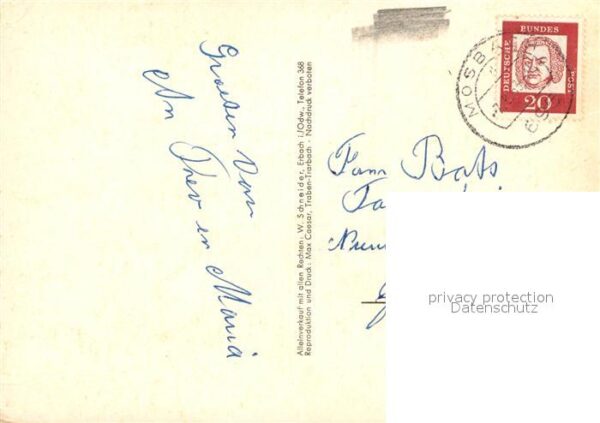 Groeten van
An Theo en Maria
Alleinverkauf mit allen Rechten: W. Schneider, Erbach i/Odw., Telefon 368
Reproduktion und Druck: Max Caesar, Traben-Trarbach - Nachdruck verboten
DEUTSCHE BUNDES POST
20
MOSBA
Fam Bats
privacy protection
Datenschutz